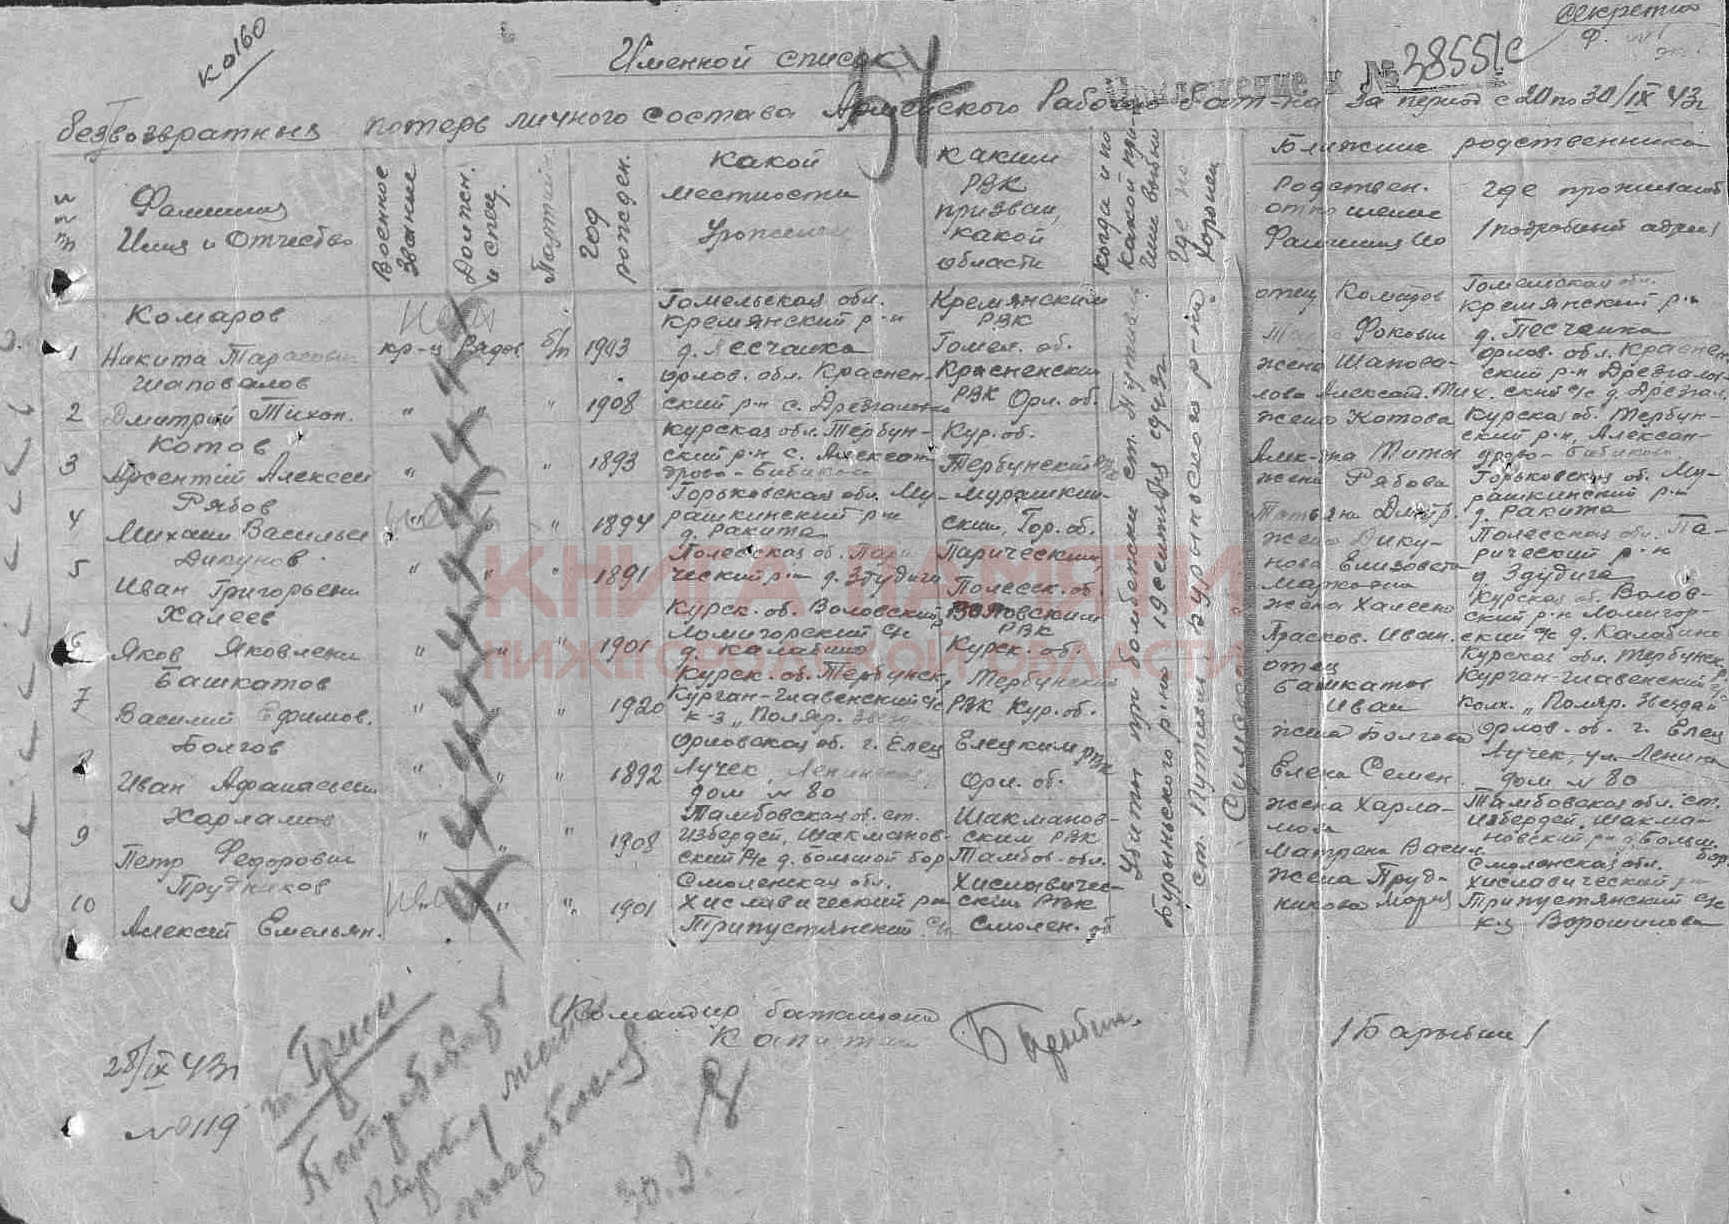 Секретно
Ф. №1
к 0160
Именной список
57
Приложение к № 38551с
безвозвратных потерь личного состава Армейского Рабочего Бат-на за период с 20 по 30/IX 43г
№ № пп
Фамилия Имя и Отчество
Военное звание
Должен. и спец.
Партий
Год рожден.
Какой местности Уроженец
Каким РВК призван, какой области
Когда и по какой при- чине выбыл
Где по- хоронен
Ближние родственники
Родствен. отношение Фамилия Ио
Где проживают /подробный адрес/
1 Комаров Никита Тарасович кр-ц Рядов б/п 1903
Гомельская обл. Кремянский р-н д. Песчанка
Кремянским РВК Гомел. об.
отец Комаров Фокович
Гомельская обл. Кремянский р-н д. Песчанка
2 Шаповалов Дмитрий Тихон. " " " 1908
Орлов. обл. Краснен- ский р-н с. Дрезгалово
Красненским РВК Орл. об.
жена Шапова- лова Александ. Тих.
Орлов. обл. Краснен ский р-н Дрезгалов- ский с/с д. Дрезгал.
3 Котов Арсентий Алексеев " " 1893
Курская обл. Тербун- ский р-н с. Алексан- дрово-Бибиково
Кур. об. Тербунский
жена Котова Алек-на Тит
Курская об. Тербун- ский р-н, Алексан- дрово-Бибиково
4 Рябов Михаил Василье " " 1894
Горьковская обл. Му- рашкинский р-н д. Ракита
Мурашкин- ским, Гор. об.
жена Рябова Татьяна Дмитр.
Горьковская об. Му- рашкинский р-н д. Ракита
5 Дикунов Иван Григорьеви " " " 1891
Полесская об. Пари ческий р-н д. Здудичи
Парическим, Полесск. об.
жена Дику- нова Елизавета
Полесская об. Па- рический р-н д. Здудича
6 Халеев Яков Яковлеви " " " 1901
Курск. об. Воловский, Ломигорский с/с д. Калабино
Воловским РВК Курск. об.
жена Халеева Прасков. Иван.
Курская об. Волов- ский р-н Ломигор- ский с/с д. Калабино
7 Башкатов Василий Ефимов. " " " 1920
Курск. об. Тербунск, Курган-Главенский с/с к-з „Поляр. Звезда
Тербунский РВК Кур. об.
отец Башкатов Иван
Курская обл. Тербунск. Курган-Главенский с/с Колх. „Поляр. Звезда"
8 Болгов Иван Афанасьеви " " " 1892
Орловская об. г. Елец Лучек, Ленинская дом № 80
Елецким РВК Орл. об.
жена Болгова Елена Семен.
Орлов. об. г. Елец Лучек, ул. Ленина дом № 80
9 Харламов Петр Федорович " " " 1908
Тамбовская об. ст. Избердей, Шакманов- ский с/с д. Большой бор
Шакманов- ским РВК Тамбов. обл.
жена Харла- мова Матрена Васил
Тамбовская обл. ст. Избердей, Шакма- новский р-н д. Больш. бор
10 Прудников Алексей Емельян. " " 1901
Смоленская обл. Хиславический р-н Трипустянский с/с
Хиславичес- ким РВК Смолен. об
жена Пруд- никова Мария
Смоленская обл. Хиславический р-н Трипустянский с/с к-з Ворошилова
Убиты при бомбежке ст. Путивль Бурыньского р-на 19 сентября 1943г
ст. Путивль Бурыньского р-на Сумской
КНИГА ПАМЯТИ
НИЖЕГОРОДСКОЙ ОБЛАСТИ
Командир батальона
Капитан Барыбин. /Барыбин/
28/IX 43г
№ 0119
Потребовать
карту места
погребения
30.9.